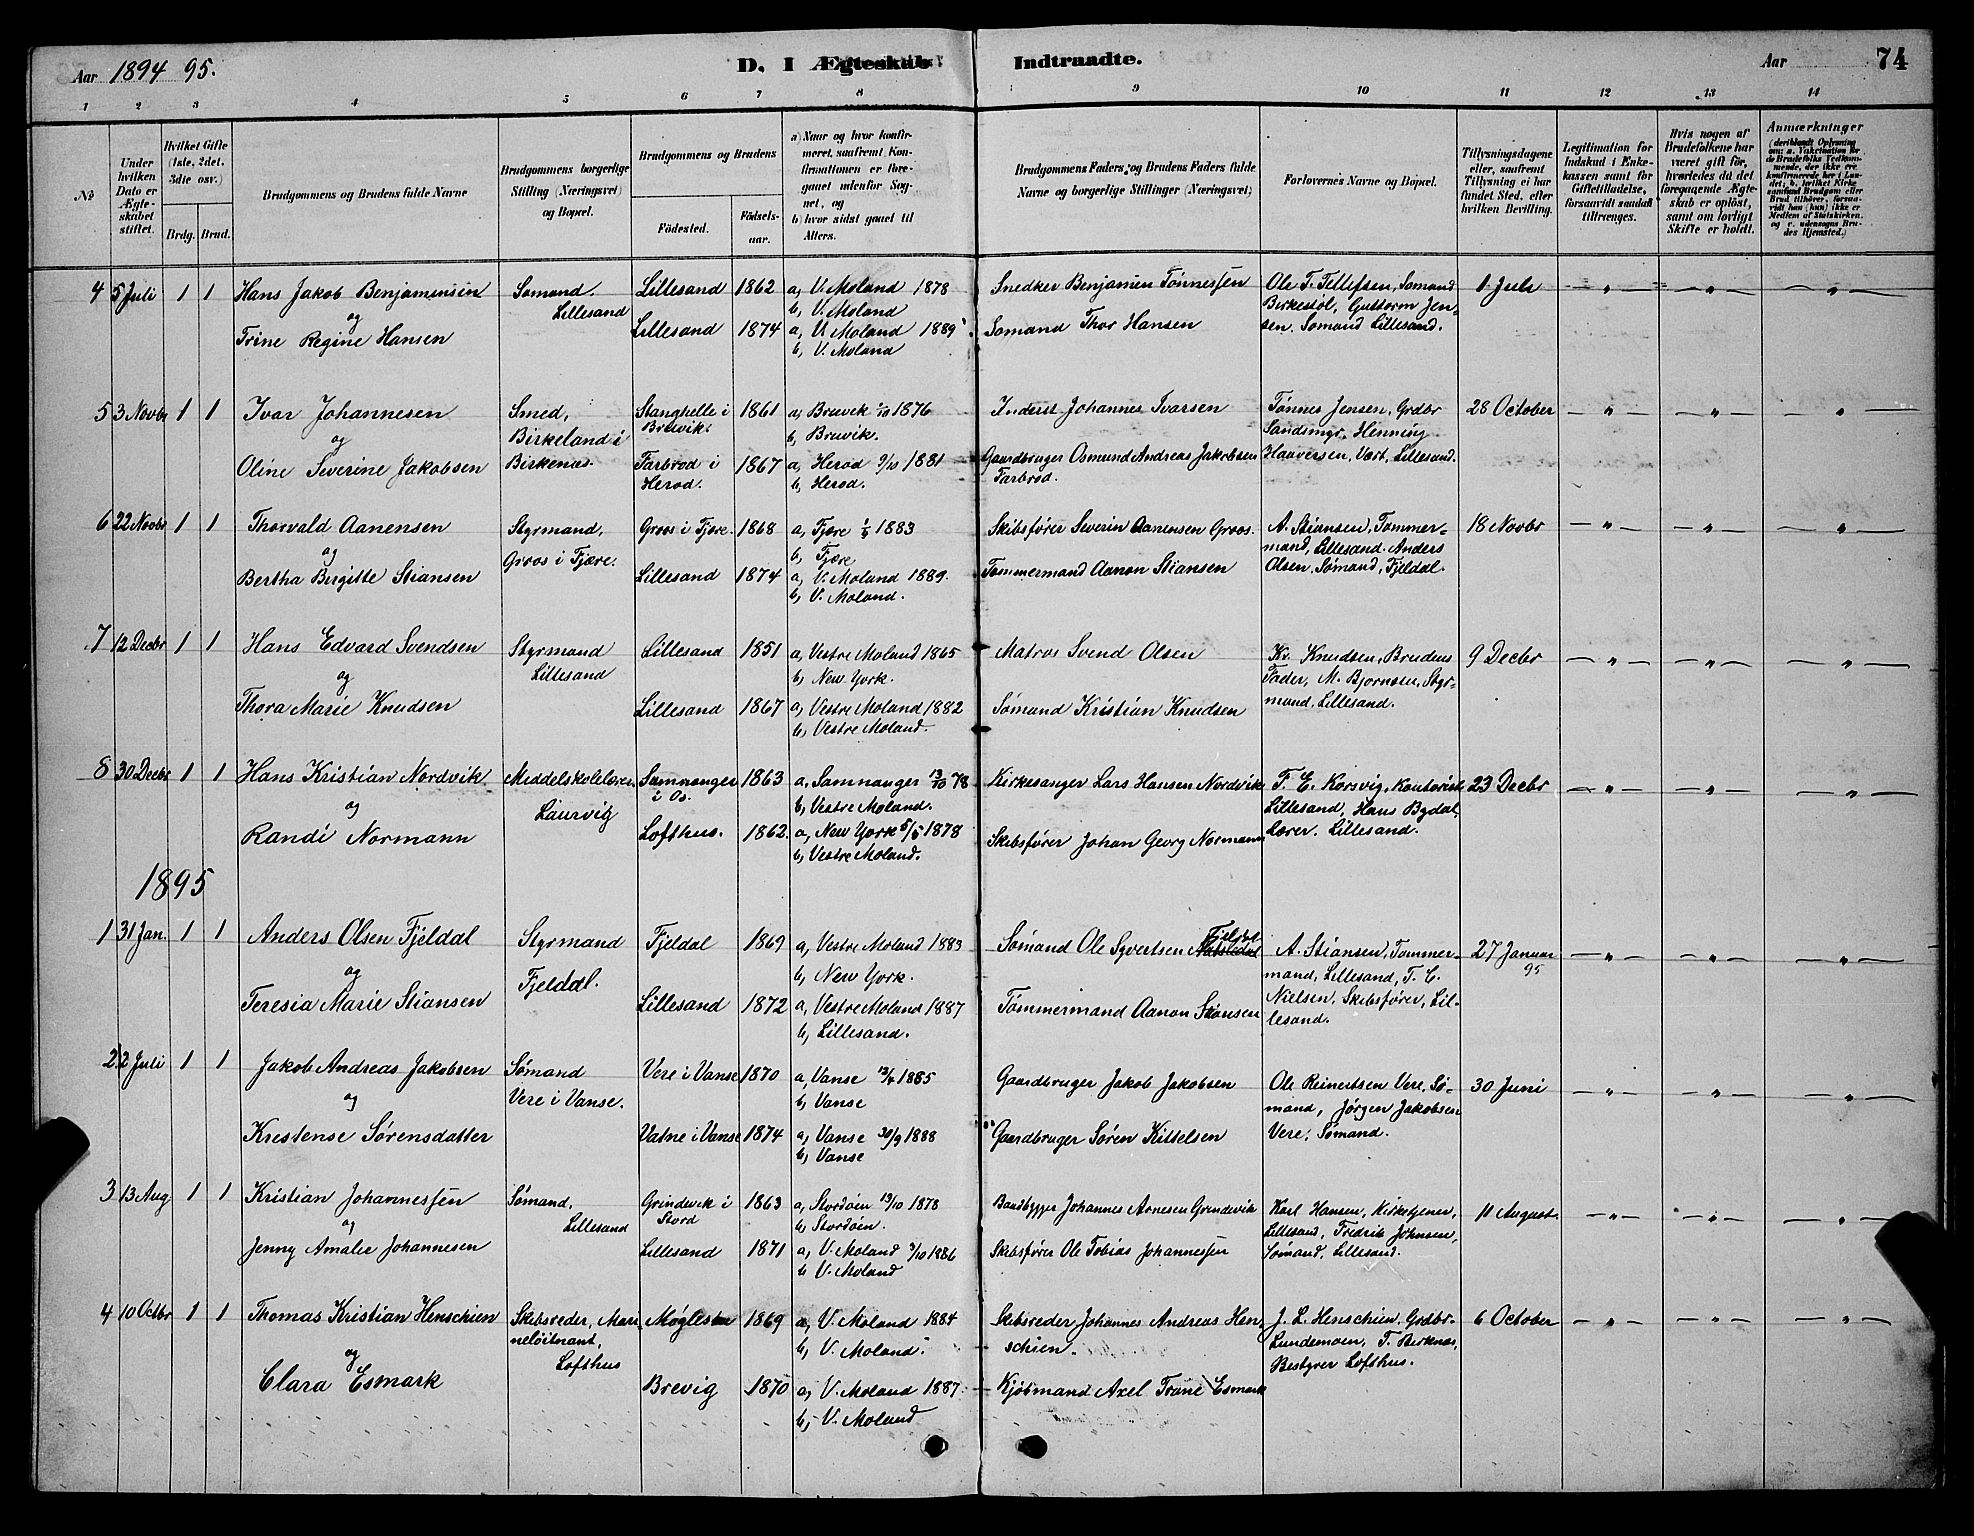 Aar 1894 95. D. I Ægteskab Indtraadte. Aar 74
1 2 3 4 5 6 7 8 9 10 11 12 13 14
No
Under hvilken Dato er Ægteskabet stiftet.
Hvilket Gifte (1ste, 2det, 3die osv.)
Brdg. Brud.
Brudgommens og Brudens fulde Navne
Brudgommens borgerlige Stilling (Næringsvei) og Bopæl.
Brudgommens og Brudens
Födested.
Födsels-aar.
a) Naar og hvor konfirmeret, saafremt Konfirmationen er foregaaet udenfor Sognet, og
b) hvor sidst gaaet til Alters.
Brudgommens Faders og Brudens Faders fulde Navne og borgerlige Stillinger (Næringsvei)
Forlovernes Navne og Bopæl.
Tillysningsdagene eller, saafremt Tillysning ei har fundet Sted, efter hvilken Bevilling.
Legitimation for Indskud i Enkekassen samt for Giftetilladelse, forsaavidt saadan tiltrænges.
Hvis nogen af Brudefolkene har været gift för, hvorledes da det foregaaende Ægteskab er oplöst, samt om lovligt Skifte er holdt.
Anmærkninger
(deriblandt Oplysning om: a. Vakcination for de Brudefolks Vedkommende, der ikke ere konfirmerede her i Landet; b. hvilket Kirkesamfund Brudgom eller Brud tilhörer, forsaavidt han (hun) ikke er Medlem af Statskirken, og c. udensogns Brudes Hjemsted.)
4 5 Juli 1 1 Hans Jakob Benjaminsen
og
Trine Regine Hansen
Sømand.
Lillesand
Lillesand 1862
Lillesand 1874
a, V. Moland 1878
b, V. Moland
a, V. Moland 1889
b, V. Moland
Snedker Benjamin Tønnessen
Sømand Thor Hansen
Ole T. Tellefsen, Sømand
Birkestøl, Guttorm Jen-
sen, Sømand Lillesand.
1 Juli
5 3 Novbr 1 1 Ivar Johannesen
og
Oline Severine Jakobsen
Smed,
Birkeland i
Birkenes.
Stanghelle i
Bruvik. 1861
Farbrod i
Herod. 1867
a, Bruvik 1/10 1876
b, Bruvik.
a, Herod 9/10 1881
b, Herod.
Inderst Johannes Ivarsen
Gaardbruger Osmund Andreas Jakobsen
Farbrod.
Tønnes Jensen, Grdbr
Sandsmyr, Henning
Haaversen, Vært, Lillesand.
28 October
6 22 Novbr 1 1 Thorvald Aanensen
og
Bertha Birgitte Stiansen
Styrmand,
Groos i Fjære.
Groos i Fjære. 1868
Lillesand 1874
a, Fjære 1883
b, Fjære
a, V. Moland 1889.
b, V. Moland.
Skibsfører Severin Aanensen Groos.
Tømmermand Aanon Stiansen
A. Stiansen, Tømmer-
mand, Lillesand. Anders
Olsen, Sømand, Fjeldal.
18 Novbr
7 12 Decbr 1 1 Hans Edvard Svendsen
og
Thora Marie Knudsen
Styrmand
Lillesand
Lillesand 1851
Lillesand 1867
a, Vestre Moland 1865
b, New York.
a, Vestre Moland 1882
b, Vestre Moland.
Matros Svend Olsen
Sømand Kristian Knudsen
Kr. Knudsen, Brudens
Fader, M. Bjørnsen, Styr-
mand, Lillesand.
9 Decbr
8 30 Decbr 1 1 Hans Kristian Nordvik
og
Randi Normann
Middelskolelærer
Laurvig
Samnanger
i Os. 1863
Lofthus. 1862.
a, Samnanger 13/10 78
b, Vestre Moland.
a, New York 5/5 1878
b, Vestre Moland.
Kirkesanger Lars Hansen Nordvik
Skibsfører Johan Georg Normann
T. E. Korsvig, Kontorist
Lillesand, Hans Bydal,
Lærer, Lillesand.
23 Decbr
1895
1 31 Jan. 1 1 Anders Olsen Fjeldal
og
Teresia Marie Stiansen
Styrmand
Fjeldal.
Fjeldal 1869
Lillesand 1872
a, Vestre Moland 1883
b, New York.
a, Vestre Moland 1887
b, Lillesand.
Sømand Ole Syvertsen Fjeldal
Tømmermand Aanon Stiansen
A. Stiansen, Tømmer-
mand, Lillesand, T. C.
Nielsen, Skibsfører, Lil-
lesand.
27 Januar
95
2 2 Juli 1 1 Jakob Andreas Jakobsen
og
Kristense Sørensdatter
Sømand
Vere i Vanse.
Vere i Vanse 1870
Vatne i Vanse 1874
a, Vanse 1885
b, Vanse
a, Vanse 30/9 1888
b, Vanse
Gaardbruger Jakob Jakobsen
Gaardbruger Søren Kittelsen
Ole Reinertsen Vere, Sø-
mand, Jørgen Jakobsen
Vere, Sømand.
30 Juni
3 13 Aug 1 1 Kristian Johannessen
og
Jenny Amalie Johannesen
Sømand,
Lillesand
Grindevik i
Stord 1863
Lillesand 1871
a, Stordøen 13/10 1878
b, Stordøen.
a, V. Moland 3/10 1886
b, V. Moland
Baadbygger Johannes Arnesen Grindevik
Skibsfører Ole Tobias Johannessen
Karl Hansen, Kirketjener,
Lillesand, Fredrik Johnsen,
Sømand, Lillesand.
11 August.
4 10 Octbr 1 1 Thomas Kristian Henschien
og
Clara Esmark
Skibsreder, Mari-
neløitnant,
Lofthus
Møglestu 1869
Brevig 1870
a, V. Moland 1884
b, V. Moland.
a, V. Moland 1887.
b, V. Moland
Skibsreder Johannes Andreas Hen-
schien.
Kjøbmand Axel Trane Esmark
J. L. Henschien, Grdbr.
Lundemoen, T. Birknes,
Bestyrer Lofthus.
6 October